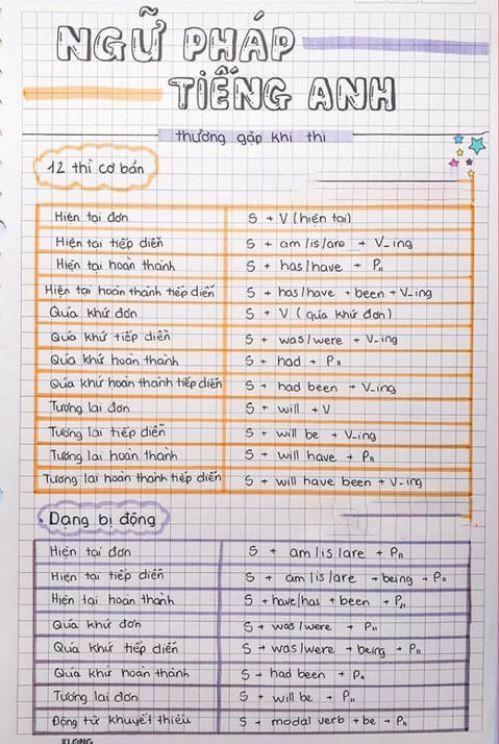 NGỮ PHÁP
TIẾNG ANH
thường gặp khi thi
12 thì cơ bản
Hiện tại đơn S + V (hiện tại)
Hiện tại tiếp diễn S + am /is /are + V_ing
Hiện tại hoàn thành S + has/have + Pп
Hiện tại hoàn thành tiếp diễn S + has/have + been + V_ing
Quá khứ đơn S + V ( quá khứ đơn)
Quá khứ tiếp diễn S + was/were + V_ing
Quá khứ hoàn thành S + had + Pп
Quá khứ hoàn thành tiếp diễn S + had been + V_ing
Tương lai đơn S + will + V
Tương lai tiếp diễn S + will be + V_ing
Tương lai hoàn thành S + will have + Pп
Tương lai hoàn thành tiếp diễn S + will have been + V_ing
Dạng bị động
Hiện tại đơn S + am/is/are + Pп
Hiện tại tiếp diễn S + am /is /are + being + Pп
Hiện tại hoàn thành S + have/has + been + Pп
Quá khứ đơn S + was /were + Pп
Quá khứ tiếp diễn S + was/were + being + Pп
Quá khứ hoàn thành S + had been + Pп
Tương lai đơn S + will be + Pп
Động từ khuyết thiếu S + modal verb + be + Pп
KLONG